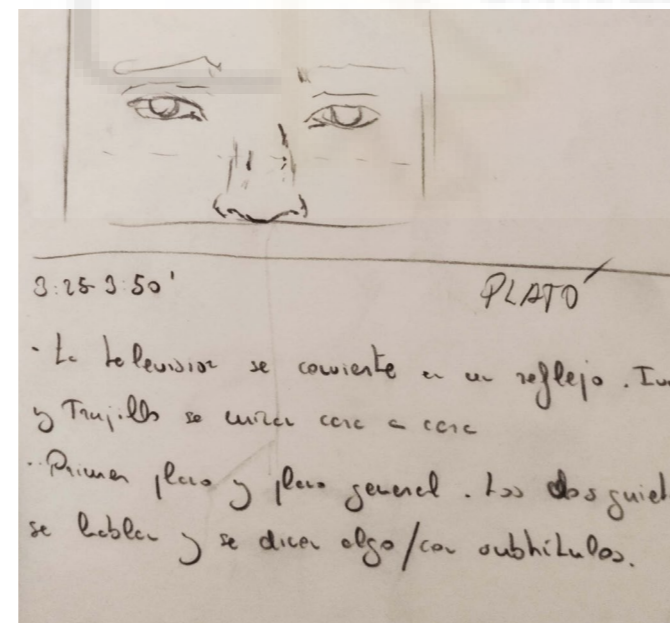 3:25-3:50' PLATÓ
· La televisión se convierte en un reflejo.
y Trujillo se miran cara a cara
· Primer plano y plano general. Los dos
se hablan y se dicen algo/con subtítulos.